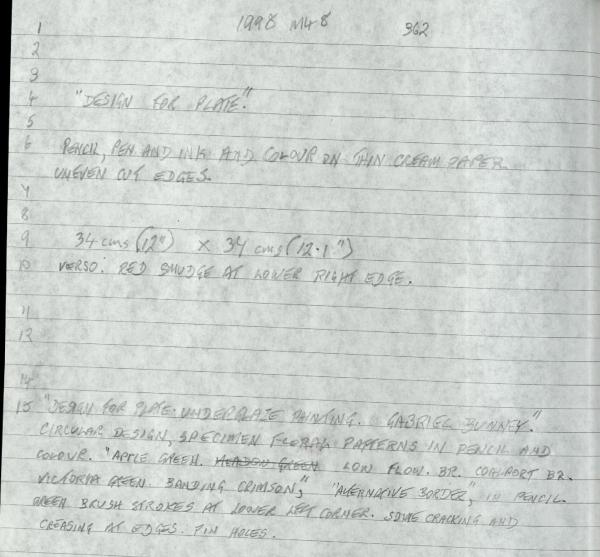 1 1998 M48 362
2
3
4 "DESIGN FOR PLATE".
5
6 PENCIL, PEN AND INK AND COLOUR ON THIN CREAM PAPER.
UNEVEN CUT EDGES.
7
8
9 34 cms (12") x 34 cms (12.1")
10 VERSO: RED SMUDGE AT LOWER RIGHT EDGE.
11
12
14
15 "DESIGN FOR PLATE. UNDERGLAZE PAINTING. GABRIEL BUNNEY."
CIRCULAR DESIGN, SPECIMEN FLORAL PATTERNS IN PENCIL AND
COLOUR. "APPLE GREEN. GREEN LOW FLOW. BR. COALPORT BR.
VICTORIA GREEN. BANDING CRIMSON," "ALTERNATIVE BORDER," IN PENCIL.
GREEN BRUSH STROKES AT LOWER LEFT CORNER. SOME CRACKING AND
CREASING AT EDGES. PIN HOLES.